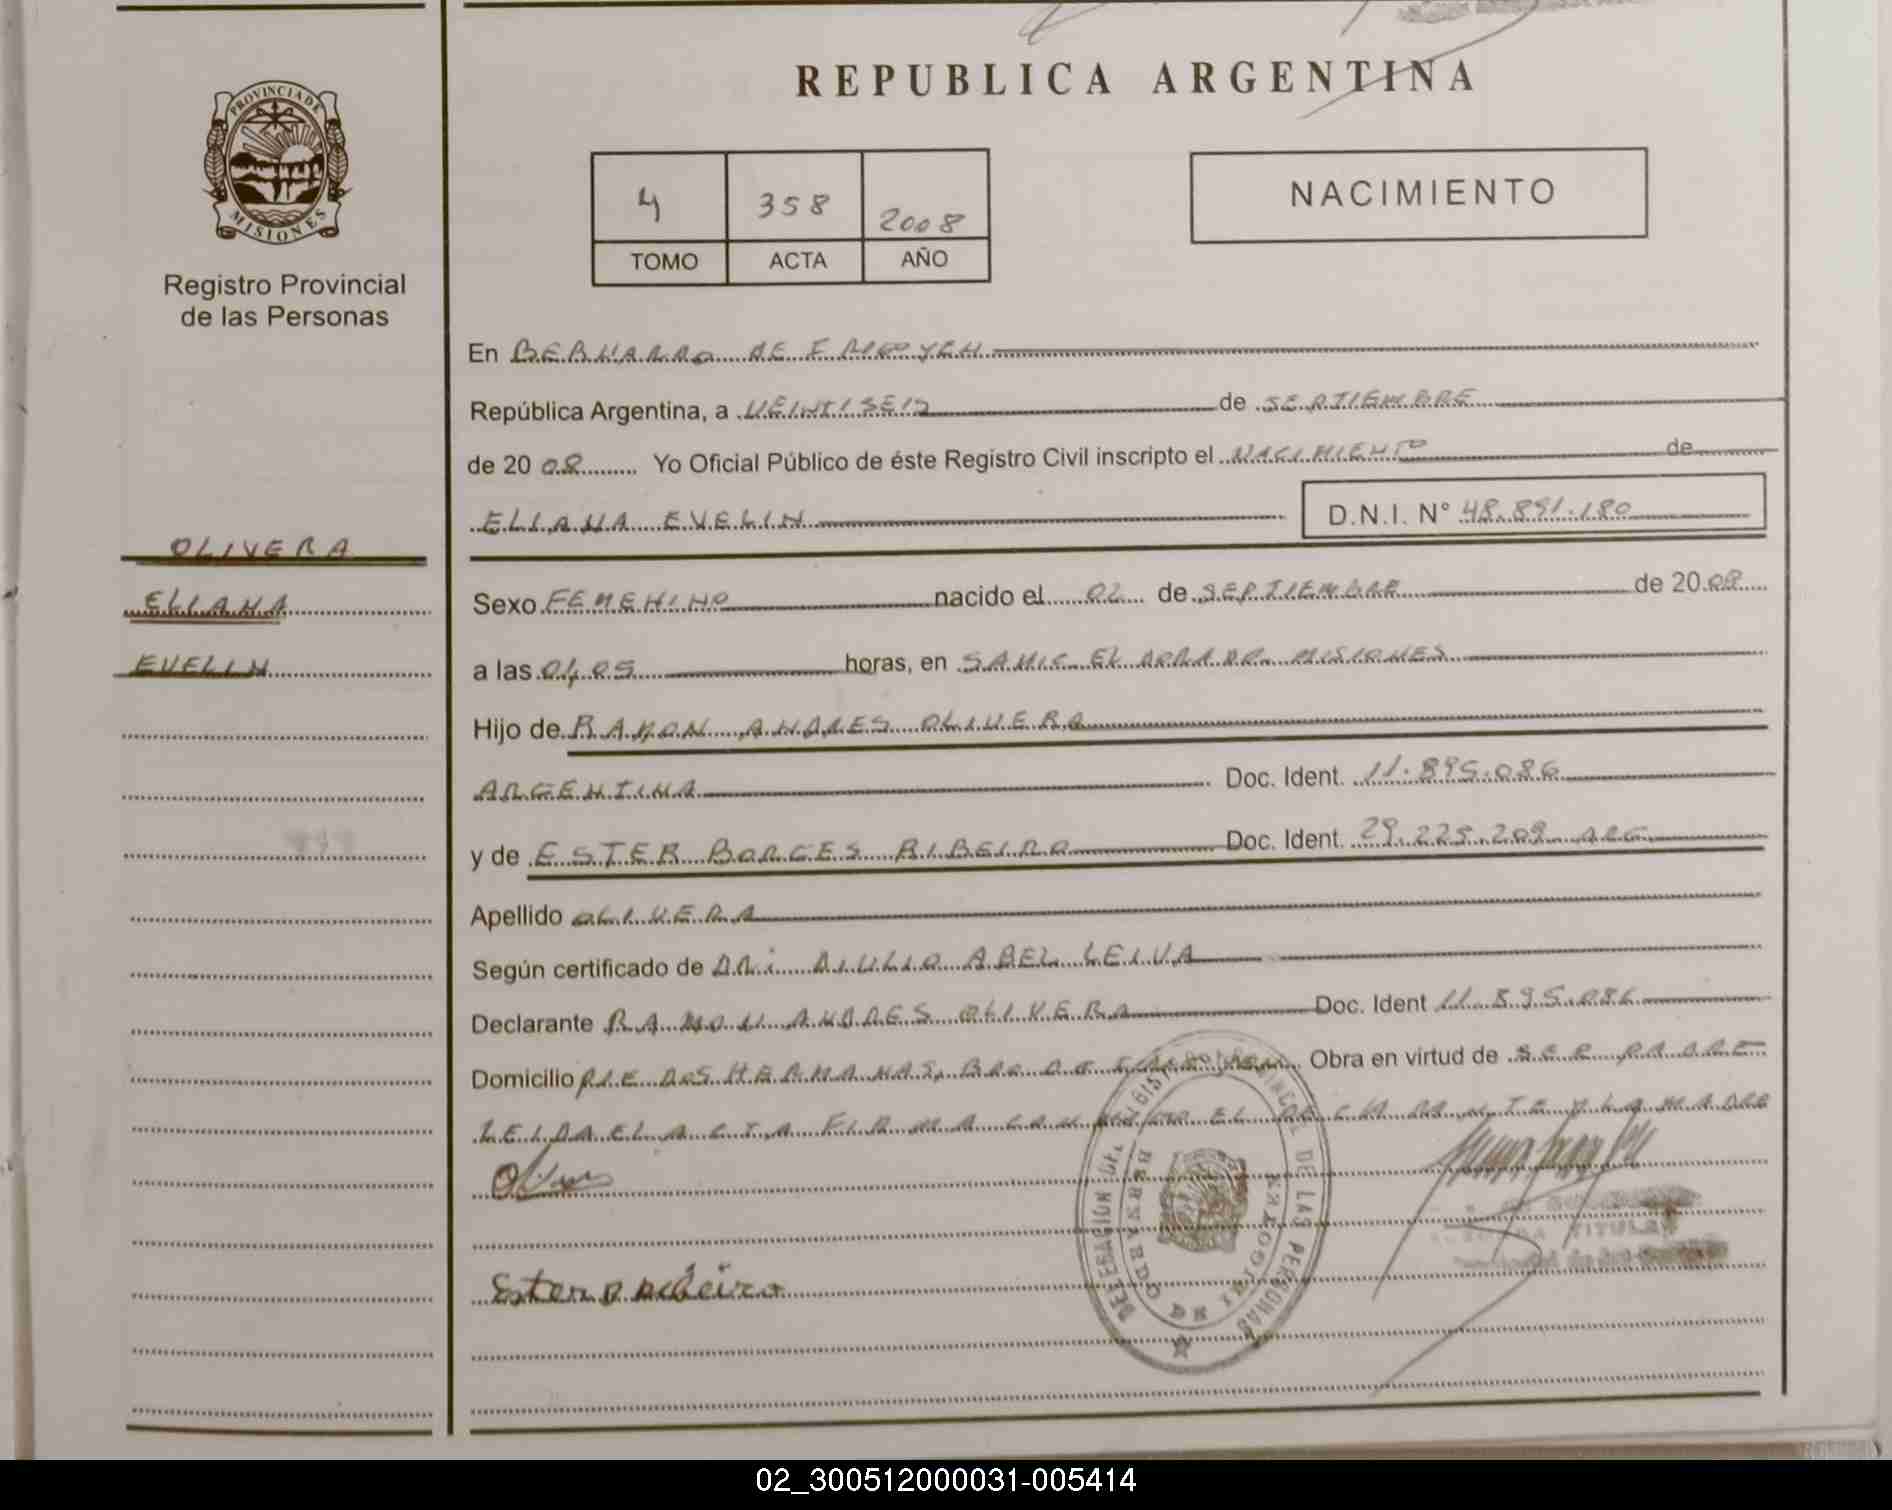 REPUBLICA ARGENTINA
PROVINCIA DE
MISIONES
Registro Provincial
de las Personas
4 358 2008
TOMO ACTA AÑO
NACIMIENTO
En BERNARDO DE IRIGOYEN
República Argentina, a VEINTISEIS de SEPTIEMBRE
de 20 08 Yo Oficial Público de éste Registro Civil inscripto el NACIMIENTO de
ELIANA EVELIN D.N.I. N° 48.891.180
OLIVERA
ELIANA
EVELIN
Sexo FEMENINO nacido el 02 de SEPTIEMBRE de 20 08
a las 01,05 horas, en SAMIC ELDORADO MISIONES
Hijo de RAMON ANDRES OLIVERA
ARGENTINA Doc. Ident. 11.895.086
y de ESTER BORGES RIBEIRO Doc. Ident. 29.225.209 ARG
Apellido OLIVERA
Según certificado de DR: DIULIO ABEL LEIVA
Declarante RAMON ANDRES OLIVERA Doc. Ident 11.895.086
Domicilio PJE DOS HERMANAS, BDO DE IRIGOYEN Obra en virtud de SER PADRE
LEIDA EL ACTA FIRMA CONMIGO EL DECLARANTE Y LA MADRE
DELEGACION DEL REGISTRO PROVINCIAL DE LAS PERSONAS
BERNARDO DE IRIGOYEN
TITULAR
02_300512000031-005414